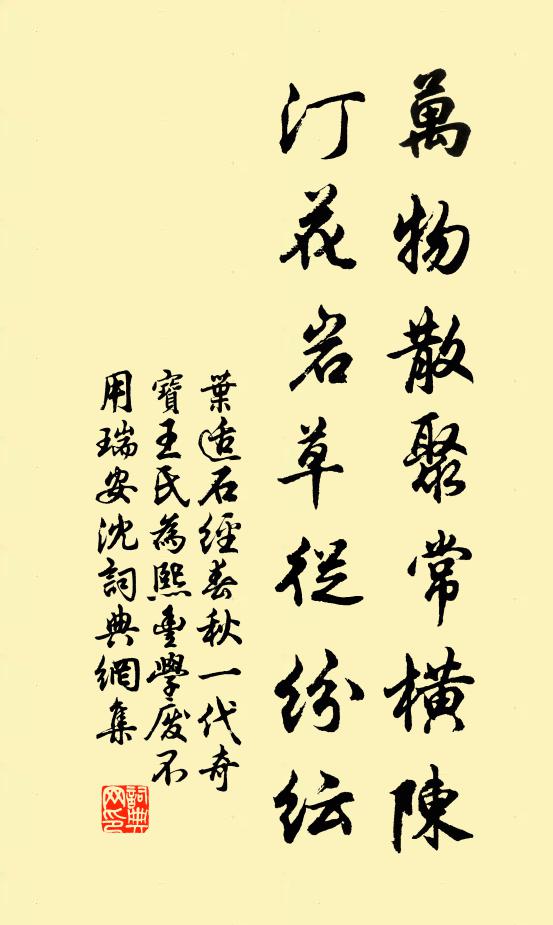 萬物散聚常橫陳
汀花岩草從紛紜
葉适石經春秋一代奇
寶王氏為熙豐學廢不
用瑞安沈詞典網集
詞典网印